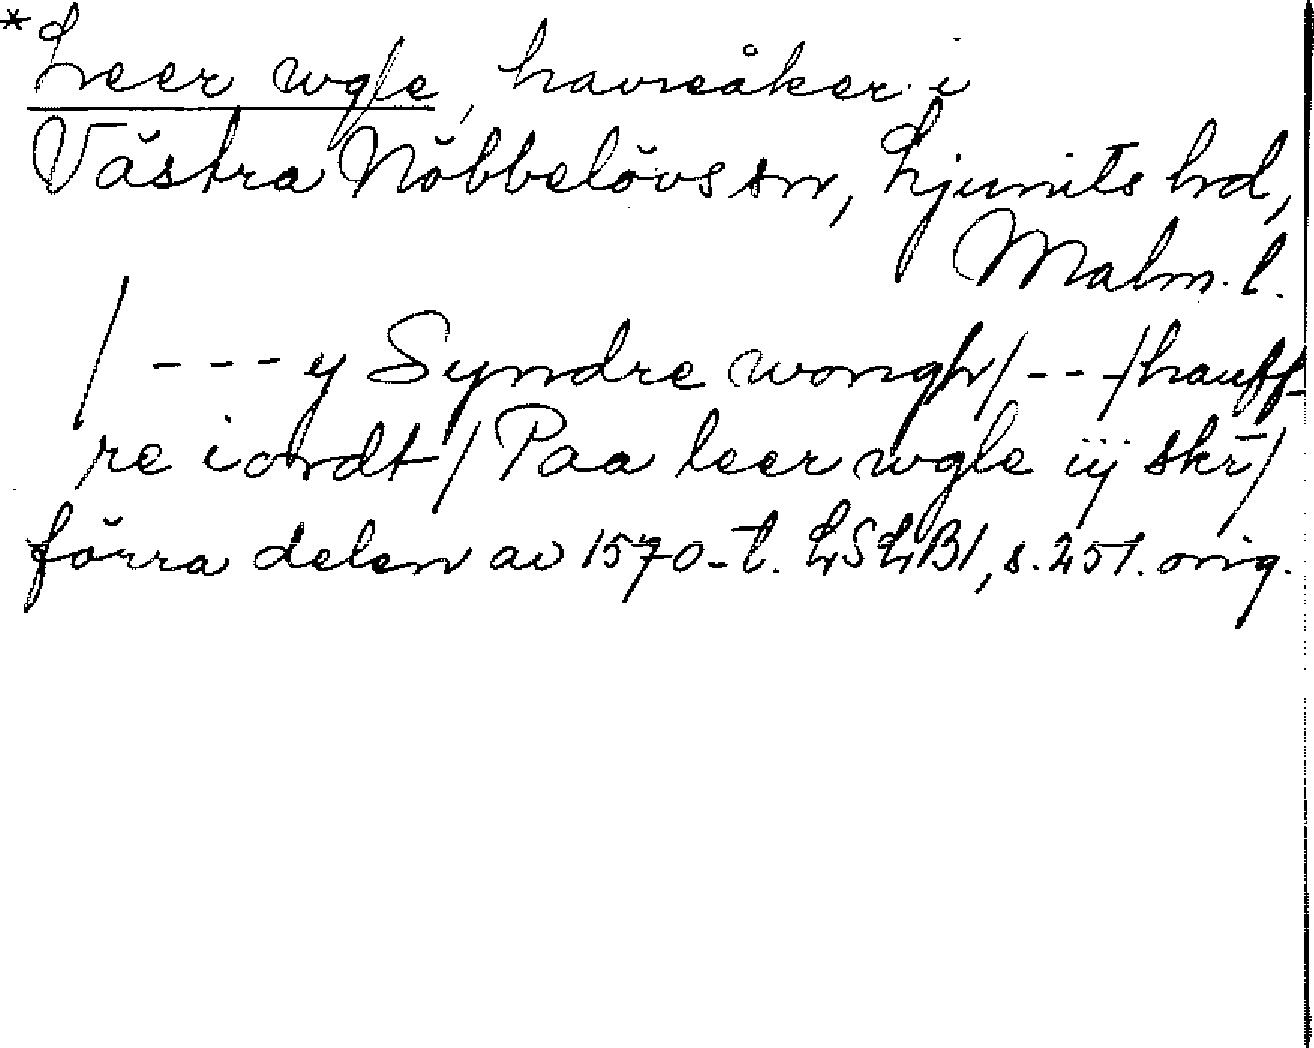 *Leer wgle, havreåker i
Västra Nöbbelövs sn, Ljunits hd,
Malm. l.
/ --- y Syndre wongh/ --- /hauff-
re iordt/ Paa leer wgle iij skr̄/
förra delen av 1570-t. LSLB1, s. 251. orig.